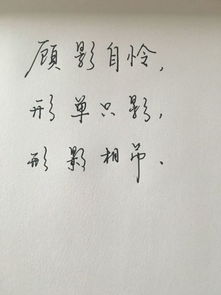 顾影自怜，
形单只影，
形影相吊．